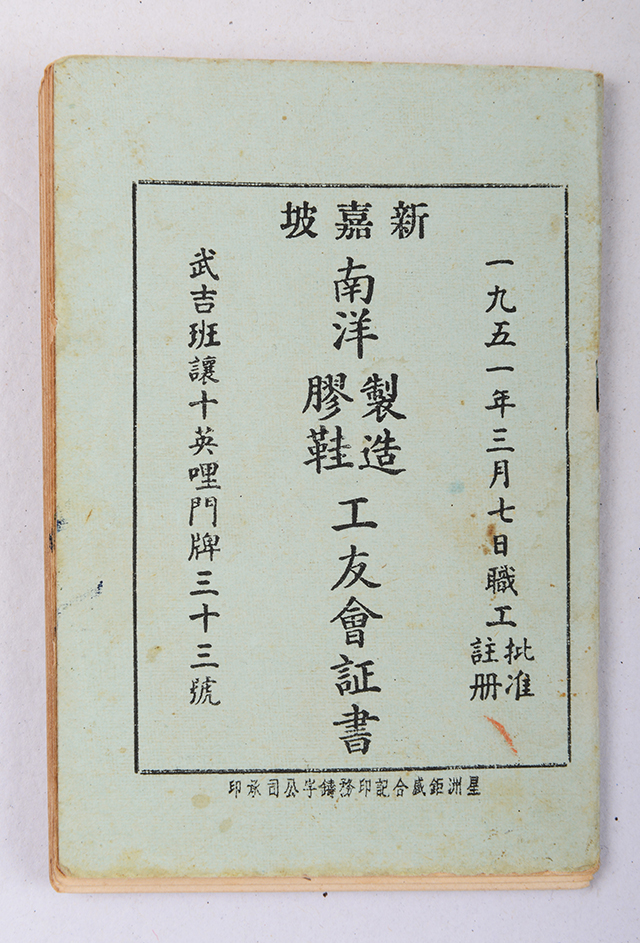 新嘉坡
一九五一年三月七日職工批准註册
南洋製造膠鞋工友會証書
武吉班讓十英哩門牌三十三號
星洲鉅盛合記印務鑄字公司承印